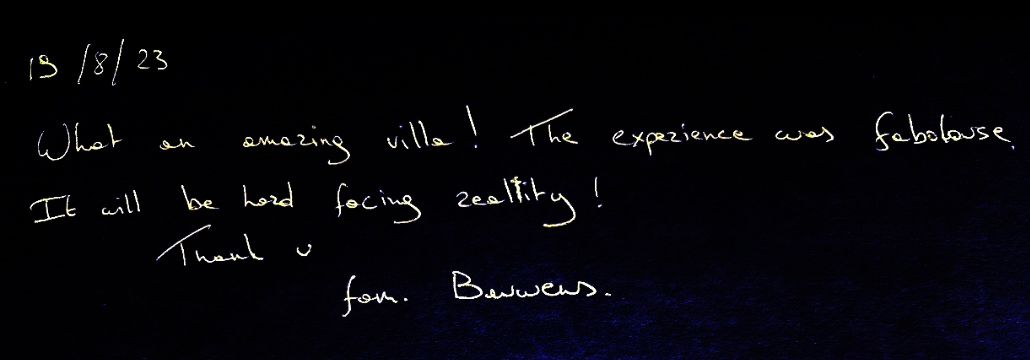 19/8/23
What an amazing villa! The experience was fabolouse.
It will be hard facing realtity!
Thank u
fam. Bauwens.